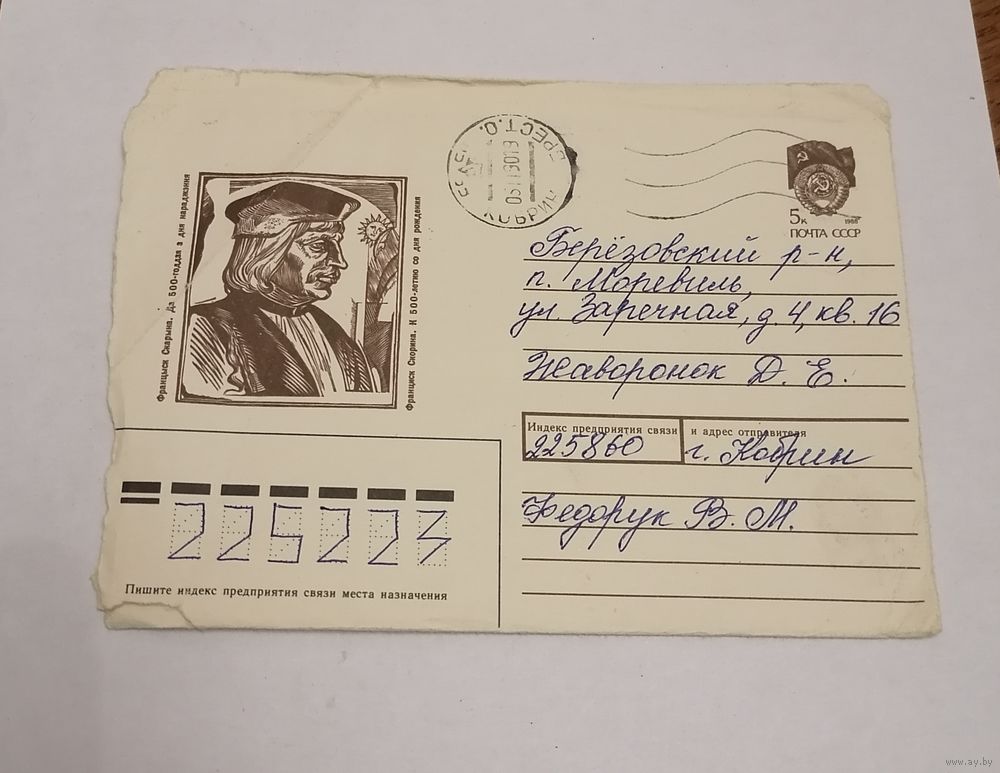 Францыск Скарына. Да 500-годдзя з дня нараджэння
Франциск Скорина. К 500-летию со дня рождения
БРЕСТ. О.
КОБРИН
5к
1988
ПОЧТА СССР
Берёзовский р-н,
п. Моревиль,
ул. Заречная, д. 4, кв. 16
Жаворонок Д. Е.
Индекс предприятия связи и адрес отправителя
225860 г. Кобрин
Федорук В. М.
225223
Пишите индекс предприятия связи места назначения
www.ay.by